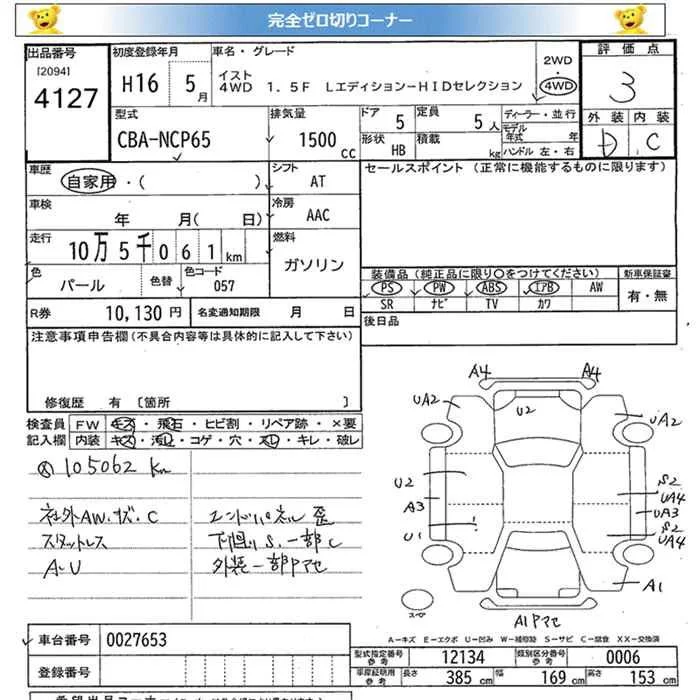 完全ゼロ切りコーナー
出品番号 初度登録年月 車名・グレード 2WD 評価点
[2094] 4127 H16 5月 イスト 4WD 1.5F LエディションーHIDセレクション 4WD 3
型式 排気量 ドア 5 定員 5人 ディーラー・並行 外装 内装
CBA-NCP65 1500cc 形状 HB 積載 kg モデル年式 年 D C
ハンドル 左・右
車歴 自家用・( ) シフト AT セールスポイント (正常に機能するものに限ります)
車検 年 月( 日) 冷房 AAC
走行 10万5千061km 燃料 ガソリン
色 パール 色替 色コード 057 装備品(純正品に限り○をつけてください) 新車保証書
PS PW ABS エアB AW 有・無
R券 10,130円 名変通知期限 月 日 SR ナビ TV カワ
注意事項申告欄(不具合内容等は具体的に記入して下さい) 後日品
修復歴 有 [箇所 ]
検査員 FW キズ・飛石・ヒビ割・リペア跡・×要
記入欄 内装 キズ・汚レ・コゲ・穴・スレ・キレ・破レ
105062 km
社外AW.サズ.C エンドパネル歪
スタットレス 下廻りS.一部C
A.U 外装一部Pマセ
A4 A4
UA2 U2 UA2
U2 S2 UA4
A3 UA3
U1 S2 UA4
A1
スペア A1Pマセ
A-キズ E-エクボ U-凹み W-補修跡 S-サビ C-腐食 XX-交換済
車台番号 0027653 型式指定番号 参考 12134 類別区分番号 参考 0006
登録番号 車庫証明用 参考 長さ 385 cm 幅 169 cm 高さ 153 cm